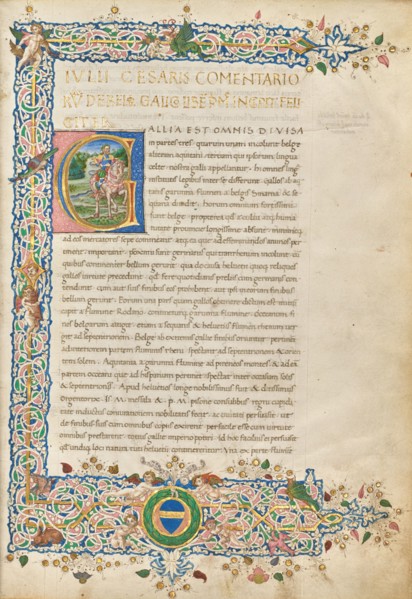 IVLII CESARIS COMENTARIO
RV DE BELL GALIC LIBE PM INCIPIT FELI
CITER
GALLIA EST OMNIS DIVISA
in partes tres quarum unam incolunt belge
aliam aquitani tertiam qui ipsorum lingua
celte nostra galli appellantur. Hi omnes lingua
institutis legibus inter se differunt. Gallos ab aqui
tanis garumna flumen a belgis matrona &
sequana diuidit. Horum omnium fortissimi
sunt belge propterea quod a cultu atq humani
tate prouincie longissime absunt minimeq
ad eos mercatores sepe comeant atq ea que ad effeminandos animos per
tinent important. proximi sunt germanis qui trans rhenum incolunt
quibus continenter bellum gerunt qua de causa heluetii quoq reliquos
gallos uirtute precedunt quod fere quotidianis preliis cum germanis con
tendunt cum aut suis finibus eos prohibent aut ipsi in eorum finibus
bellum gerunt. Eorum una pars quam gallos obtinere dictum est initium
capit a flumine Rodano continetur garumna flumine oceano fi
nibus belgarum attingit etiam a sequanis & heluetiis flumen rhenum uer
git ad septentrionem. Belge ab extremis gallie finibus oriuntur pertinent
ad inferiorem partem fluminis rheni spectant ad septentrionem & orien
tem solem. Aquitania a garumna flumine ad pireneos montes & ad
partem oceani que ad hispaniam pertinet spectat inter occasum solis
& septentriones. Apud heluetios longe nobilissimus fuit & ditissimus
orgentorix. Is M. messala & M. pisone consulibus regni cupidi
tate inductus coniurationem nobilitatis fecit & ciuitati persuasit ut
de finibus suis cum omnibus copiis exirent perfacile esse cum uirtute
omnibus prestarent totius gallie imperio potiri. Id hoc facilius eis persuasit
quod undiq loci natura heluetii continerentur. Vna ex parte flumine